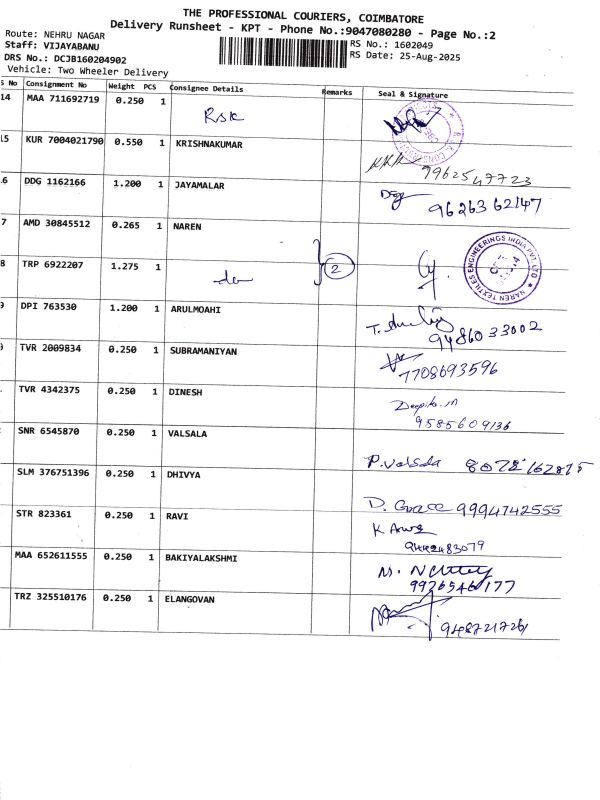 THE PROFESSIONAL COURIERS, COIMBATORE
Delivery Runsheet - KPT - Phone No.:9047080280 - Page No.:2
Route: NEHRU NAGAR
Staff: VIJAYABANU
RS No.: 1602049
DRS No.: DCJB160204902
RS Date: 25-Aug-2025
Vehicle: Two Wheeler Delivery
s No Consignment No Weight PCS Consignee Details Remarks Seal & Signature
14 MAA 711692719 0.250 1 RSK
15 KUR 7004021790 0.550 1 KRISHNAKUMAR 9962547723
6 DDG 1162166 1.200 1 JAYAMALAR 9626362147
7 AMD 30845512 0.265 1 NAREN
NAREN TEXTILES ENGINEERINGS INDIA PVT LTD
8 TRP 6922207 1.275 1 do 2
9 DPI 763530 1.200 1 ARULMOAHI 9486033002
TVR 2009834 0.250 1 SUBRAMANIYAN 7708693596
TVR 4342375 0.250 1 DINESH Deepika.m
9585609136
SNR 6545870 0.250 1 VALSALA P. Valsala
SLM 376751396 0.250 1 DHIVYA D. Grace 9994742555
STR 823361 0.250 1 RAVI
9442483079
MAA 652611555 0.250 1 BAKIYALAKSHMI
TRZ 325510176 0.250 1 ELANGOVAN 9487217261